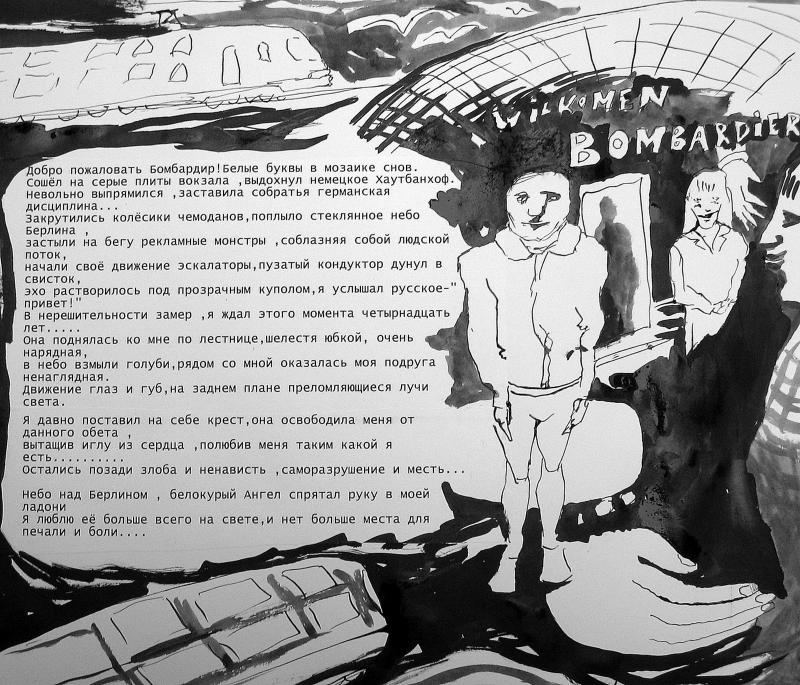 WILKOMEN
BOMBARDIER
Добро пожаловать Бомбардир!Белые буквы в мозаике снов.
Сошёл на серые плиты вокзала ,выдохнул немецкое Хаутбанхоф.
Невольно выпрямился ,заставила собраться германская
дисциплина...
Закрутились колёсики чемоданов,поплыло стеклянное небо
Берлина ,
застыли на бегу рекламные монстры ,соблазняя собой людской
поток,
начали своё движение эскалаторы,пузатый кондуктор дунул в
свисток,
эхо растворилось под прозрачным куполом,я услышал русское-"
привет!"
В нерешительности замер ,я ждал этого момента четырнадцать
лет.....
Она поднялась ко мне по лестнице,шелестя юбкой, очень
нарядная,
в небо взмыли голуби,рядом со мной оказалась моя подруга
ненаглядная.
Движение глаз и губ,на заднем плане преломляющиеся лучи
света.
Я давно поставил на себе крест,она освободила меня от
данного обета ,
вытащив иглу из сердца ,полюбив меня таким какой я
есть..........
Остались позади злоба и ненависть ,саморазрушение и месть...
Небо над Берлином , белокурый Ангел спрятал руку в моей
ладони
Я люблю её больше всего на свете,и нет больше места для
печали и боли....